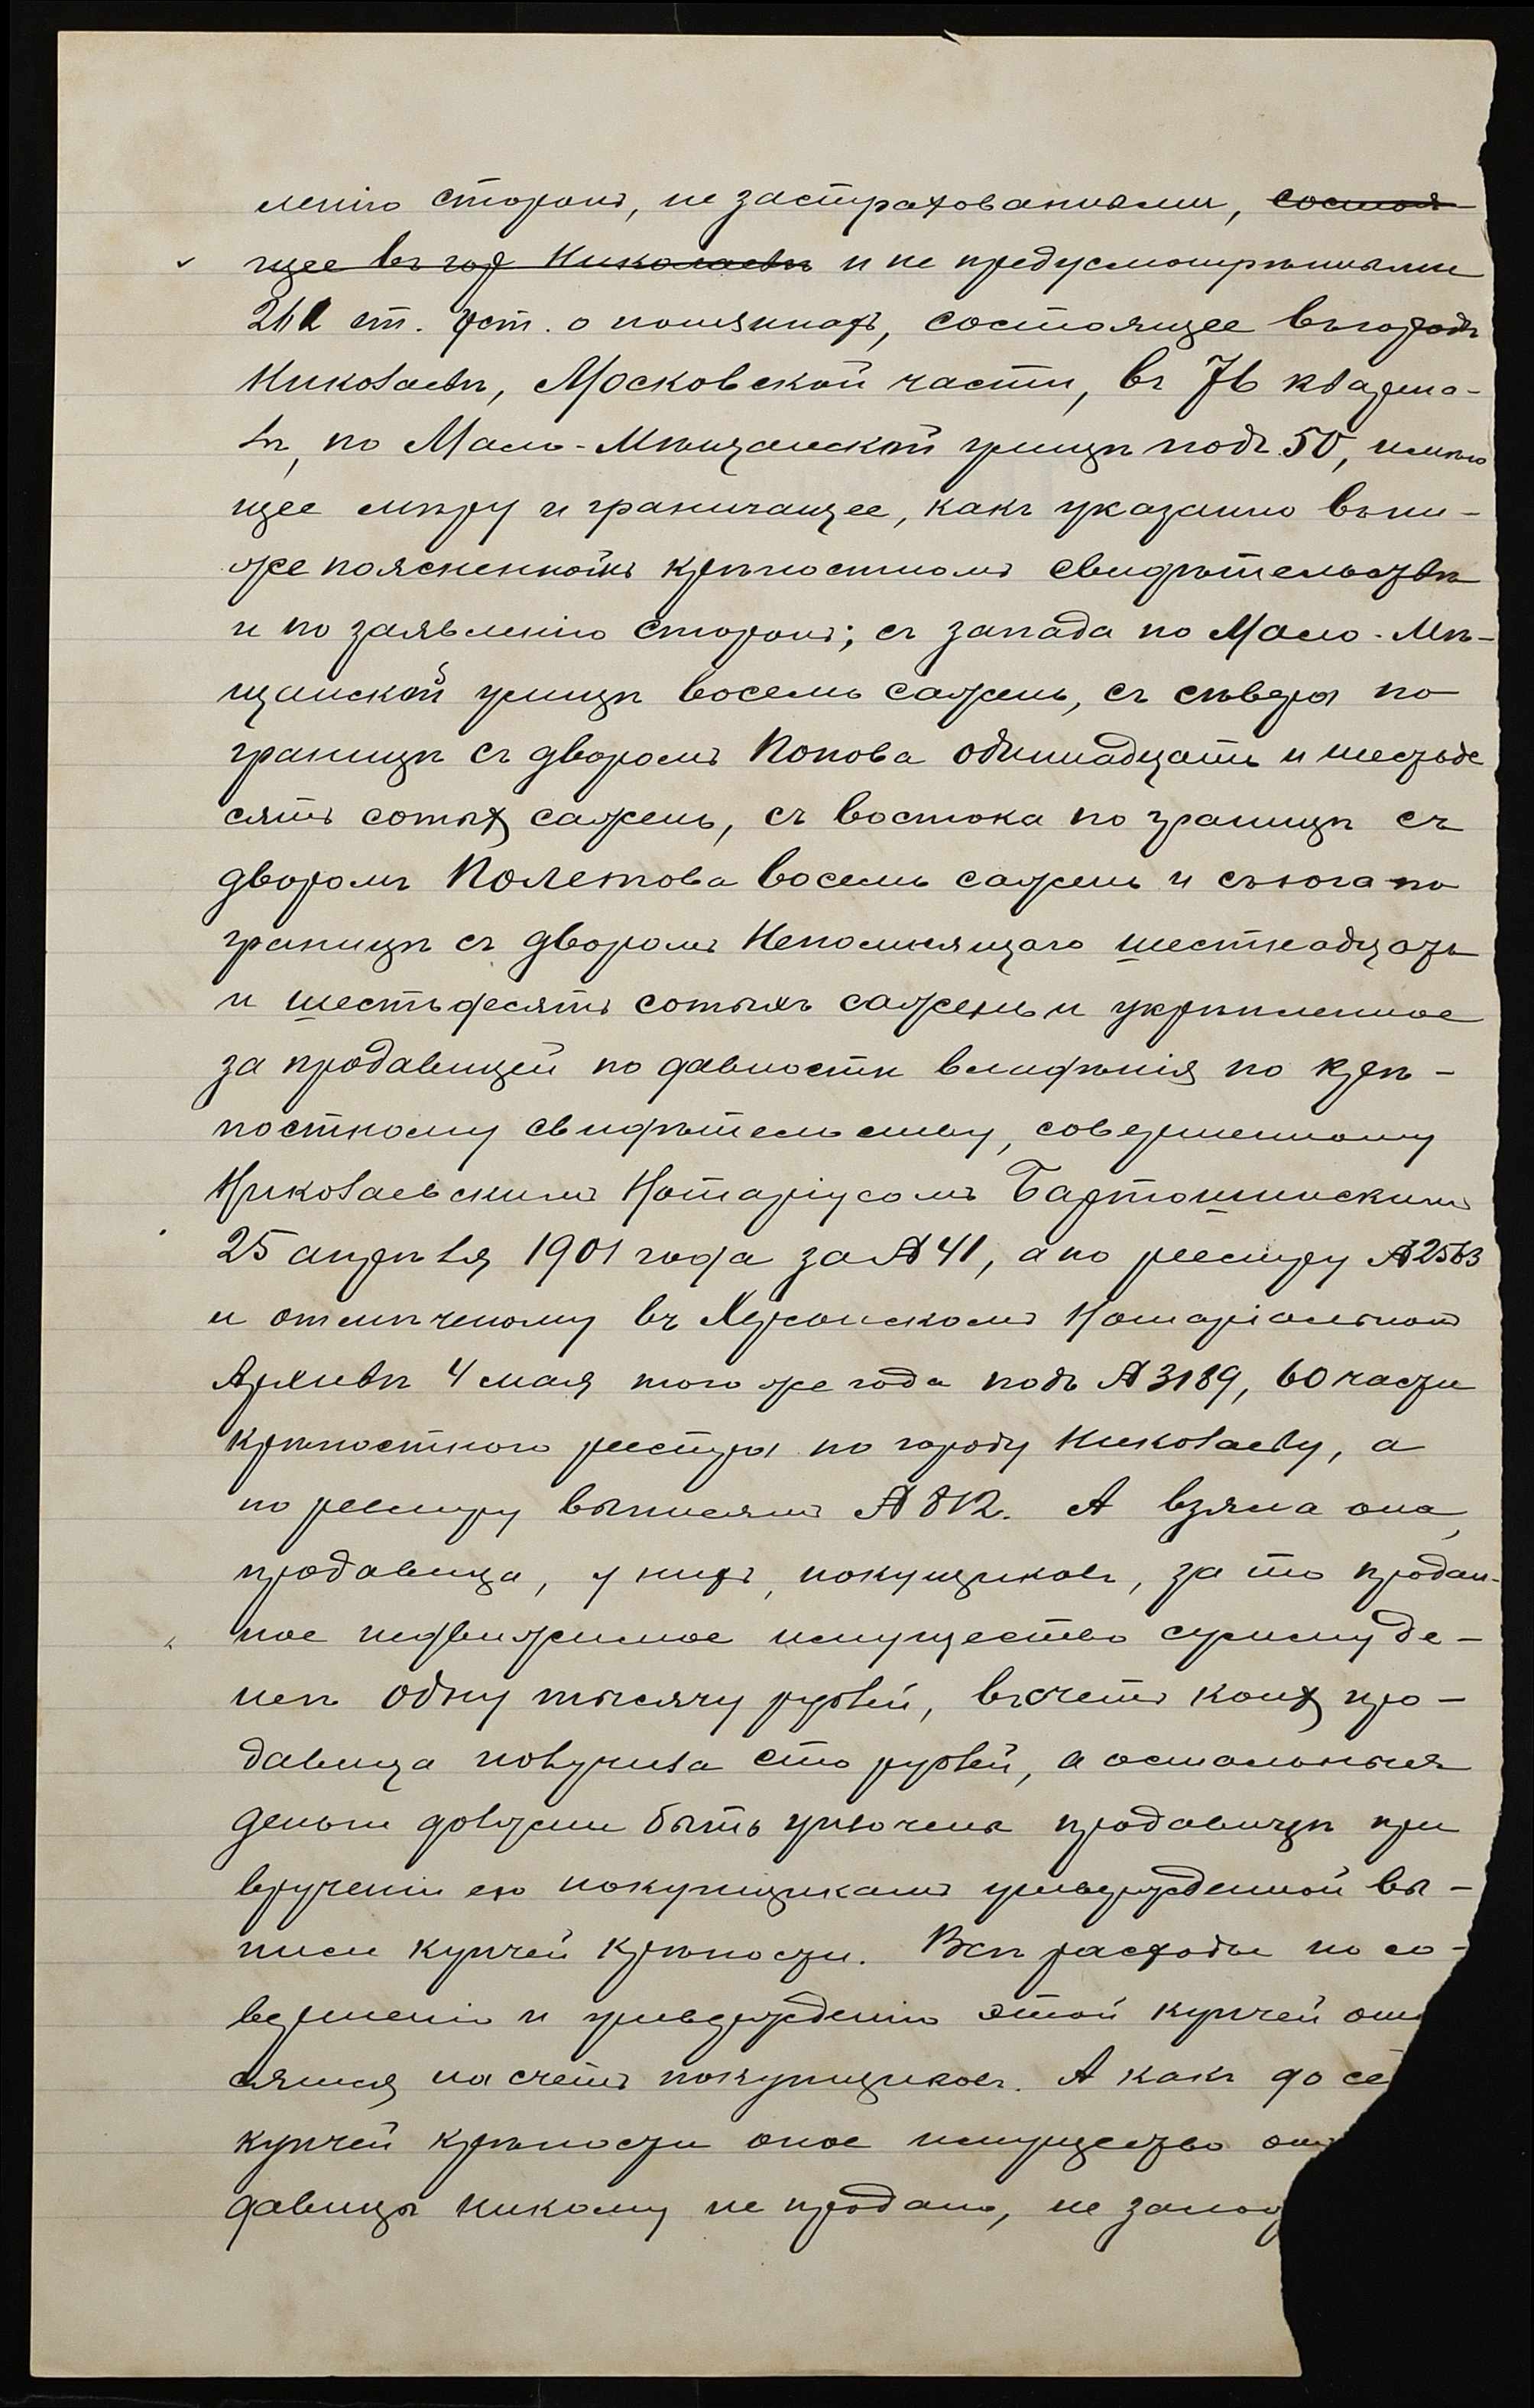 ленію сторонъ, не застрахованными, состоя-
щее въ гор Николаевѣ и не предусмотрѣнными
262 ст. уст. о пошлинахъ, состоящее въ городѣ
Николаевѣ, Московской части, въ 76 кварта-
лѣ, по Мало-Мѣщанской улицѣ подъ 50, имѣю
щее мѣру и граничащее, какъ указанно въ ни-
же поясненномъ крѣпостномъ свидѣтельствѣ
и по заявленію сторонъ; съ запада по Мало-Мѣ-
щанской улицѣ восемь сажень, съ сѣвера по
границѣ съ дворомъ Попова одиннадцать и шестьде
сятъ сотыхъ сажень, съ востока по границѣ съ
дворомъ Полетова восемь сажень и съ юга по
границѣ съ дворомъ Непомнящаго шестнадцать
и шестьдесятъ сотыхъ сажень и укрѣпленное
за продавицей по давности владѣнія по крѣ-
постному свидѣтельству, совершенному
Николаевскимъ Нотаріусомъ Бартошинскимъ
25 апрѣля 1901 года за № 41, а по реестру № 2563
и отмѣченому въ Херсонскомъ Нотаріальномъ
Архивѣ 4 мая того же года подъ № 3189, 60 части
крѣпостного реестра по городу Николаеву, а
по реестру выписямъ № 812. А взяла она,
продавица, у нихъ, покупщиковъ, за то продан-
ное недвижимое имущество сумму де-
негъ одну тысячу рублей, въ счетъ коихъ про-
давица получила сто рублей, а остальныя
деньги должны быть уплочены продавицѣ при
врученіи ею покупщикамъ утвержденной вы-
писи купчей крѣпости. Всѣ расходы по со-
вершенію и утвержденію этой купчей отн
сятся на счетъ покупщиковъ. А какъ до се
купчей крѣпости оное имущество от
давицы никому не продано, не залож